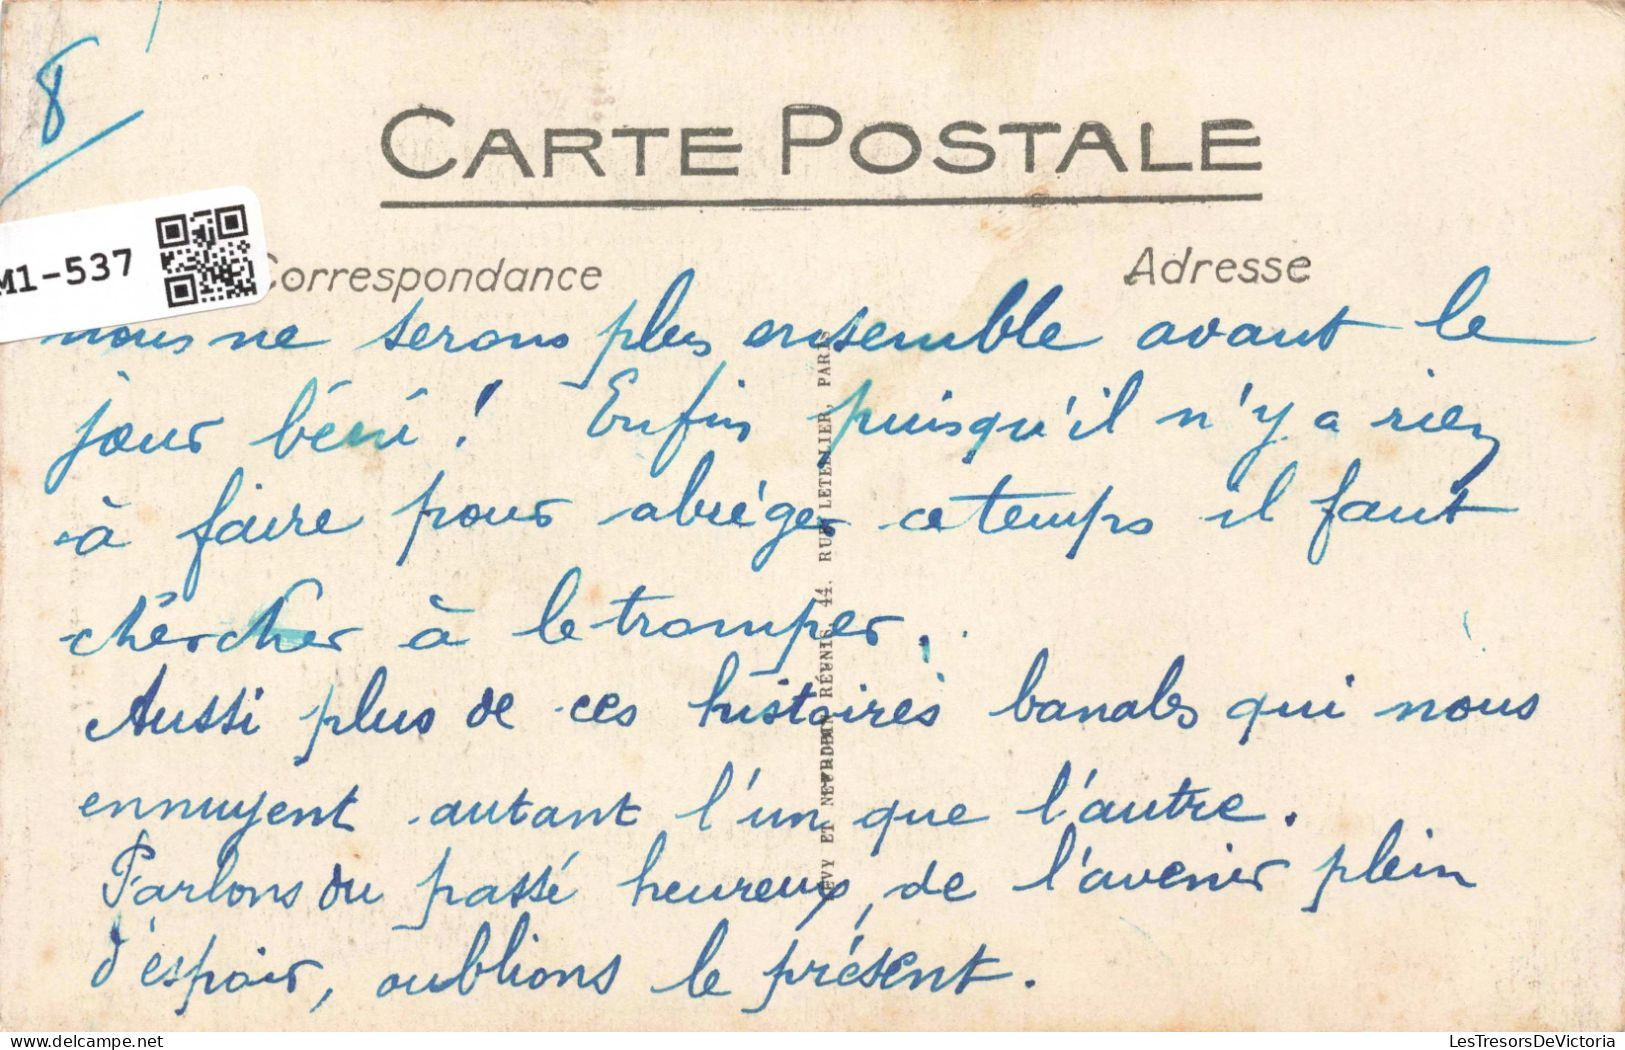 8
CARTE POSTALE
M1-537
Correspondance
Adresse
nous ne serons plus ensemble avant le
jour béni ! Enfin puisqu'il n'y a rien
à faire pour abréger ce temps il faut
chercher à le tromper.
Aussi plus de ces histoires banales qui nous
ennuyent autant l'un que l'autre.
Parlons du passé heureux, de l'avenir plein
d'espoir, oublions le présent.
LEVY ET NEURDEIN RÉUNIS, 44, RUE LETELLIER, PARIS
LesTresorsDeVictoria